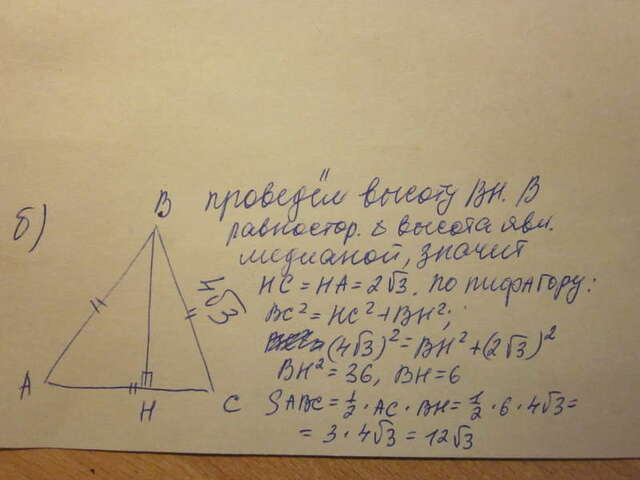 б)
A
B
H
C
4√3
проведём высоту BH. В
равностор. △ высота явл.
медианой, значит
HC = HA = 2√3. по пифагору:
BC² = HC² + BH²;
(4√3)² = BH² + (2√3)²
BH² = 36, BH = 6
SABC = 1/2 · AC · BH = 1/2 · 6 · 4√3 =
= 3 · 4√3 = 12√3